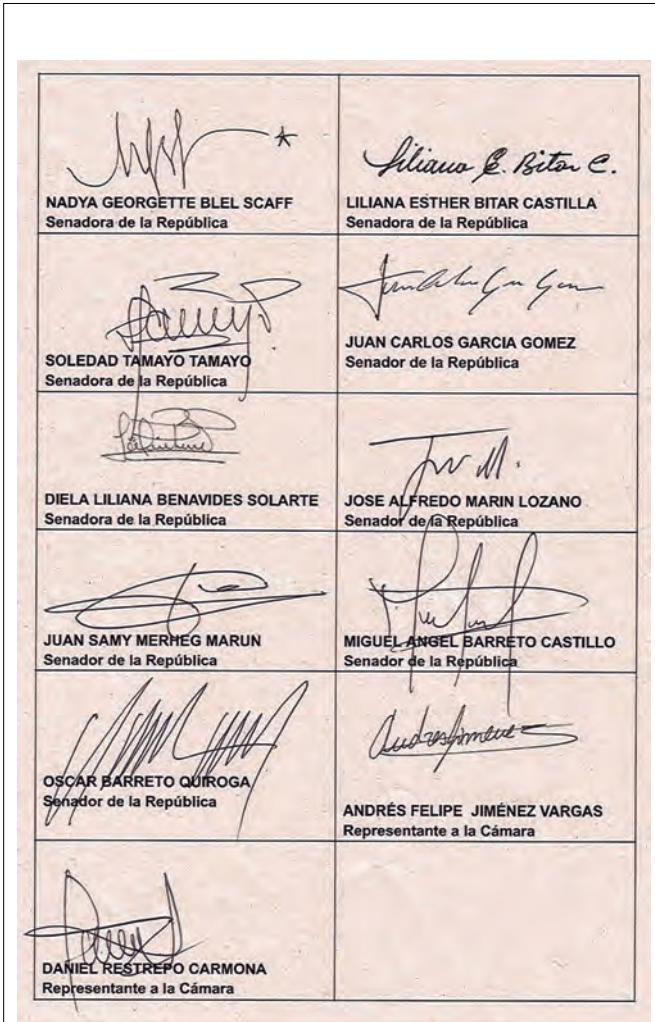 NADYA GEORGETTE BLEL SCAFF
Senadora de la República
Liliana E. Bitar C.
LILIANA ESTHER BITAR CASTILLA
Senadora de la República
SOLEDAD TAMAYO TAMAYO
Senadora de la República
JUAN CARLOS GARCIA GOMEZ
Senador de la República
DIELA LILIANA BENAVIDES SOLARTE
Senadora de la República
JOSE ALFREDO MARIN LOZANO
Senador de la República
JUAN SAMY MERHEG MARUN
Senador de la República
MIGUEL ANGEL BARRETO CASTILLO
Senador de la República
OSCAR BARRETO QUIROGA
Senador de la República
ANDRÉS FELIPE JIMÉNEZ VARGAS
Representante a la Cámara
DANIEL RESTREPO CARMONA
Representante a la Cámara